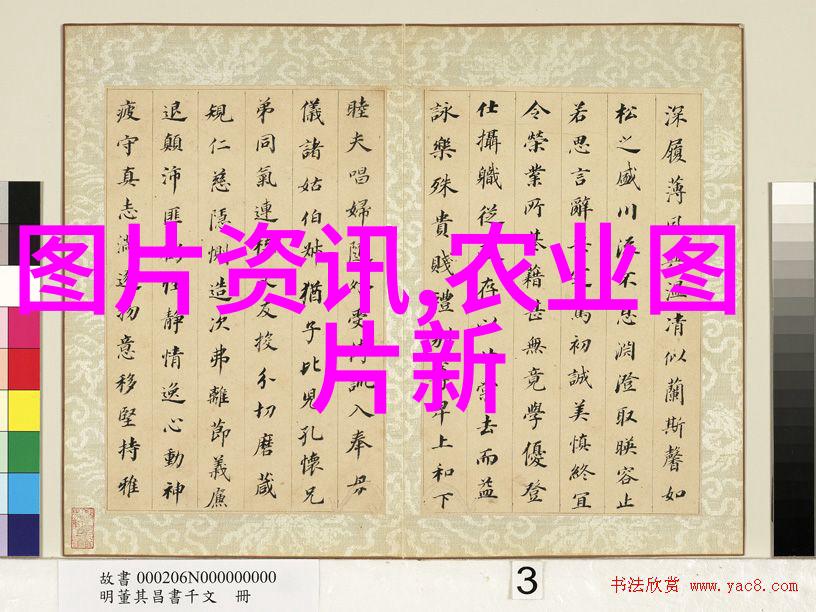 图片资讯,农业图
片新
深履薄溫凊似蘭斯馨如
松之盛川流不息淵澄取暎容止
若思言辭初誠美慎終宜
令榮業所基籍甚無竟學優登
仕攝職從存以去而益
詠樂殊貴賤禮上和下
睦夫唱婦隨受訓入奉母
儀諸姑伯叔猶子比兒孔懷兄
弟同氣連友投分切磨葴
規仁慈隱惻造次弗離節義廉
退顛沛匪性靜情逸心動神
疲守真志滿逐物意移堅持雅
故書 000206N000000000
明董其昌書千文 冊
3
书法欣赏 www.yac8.com